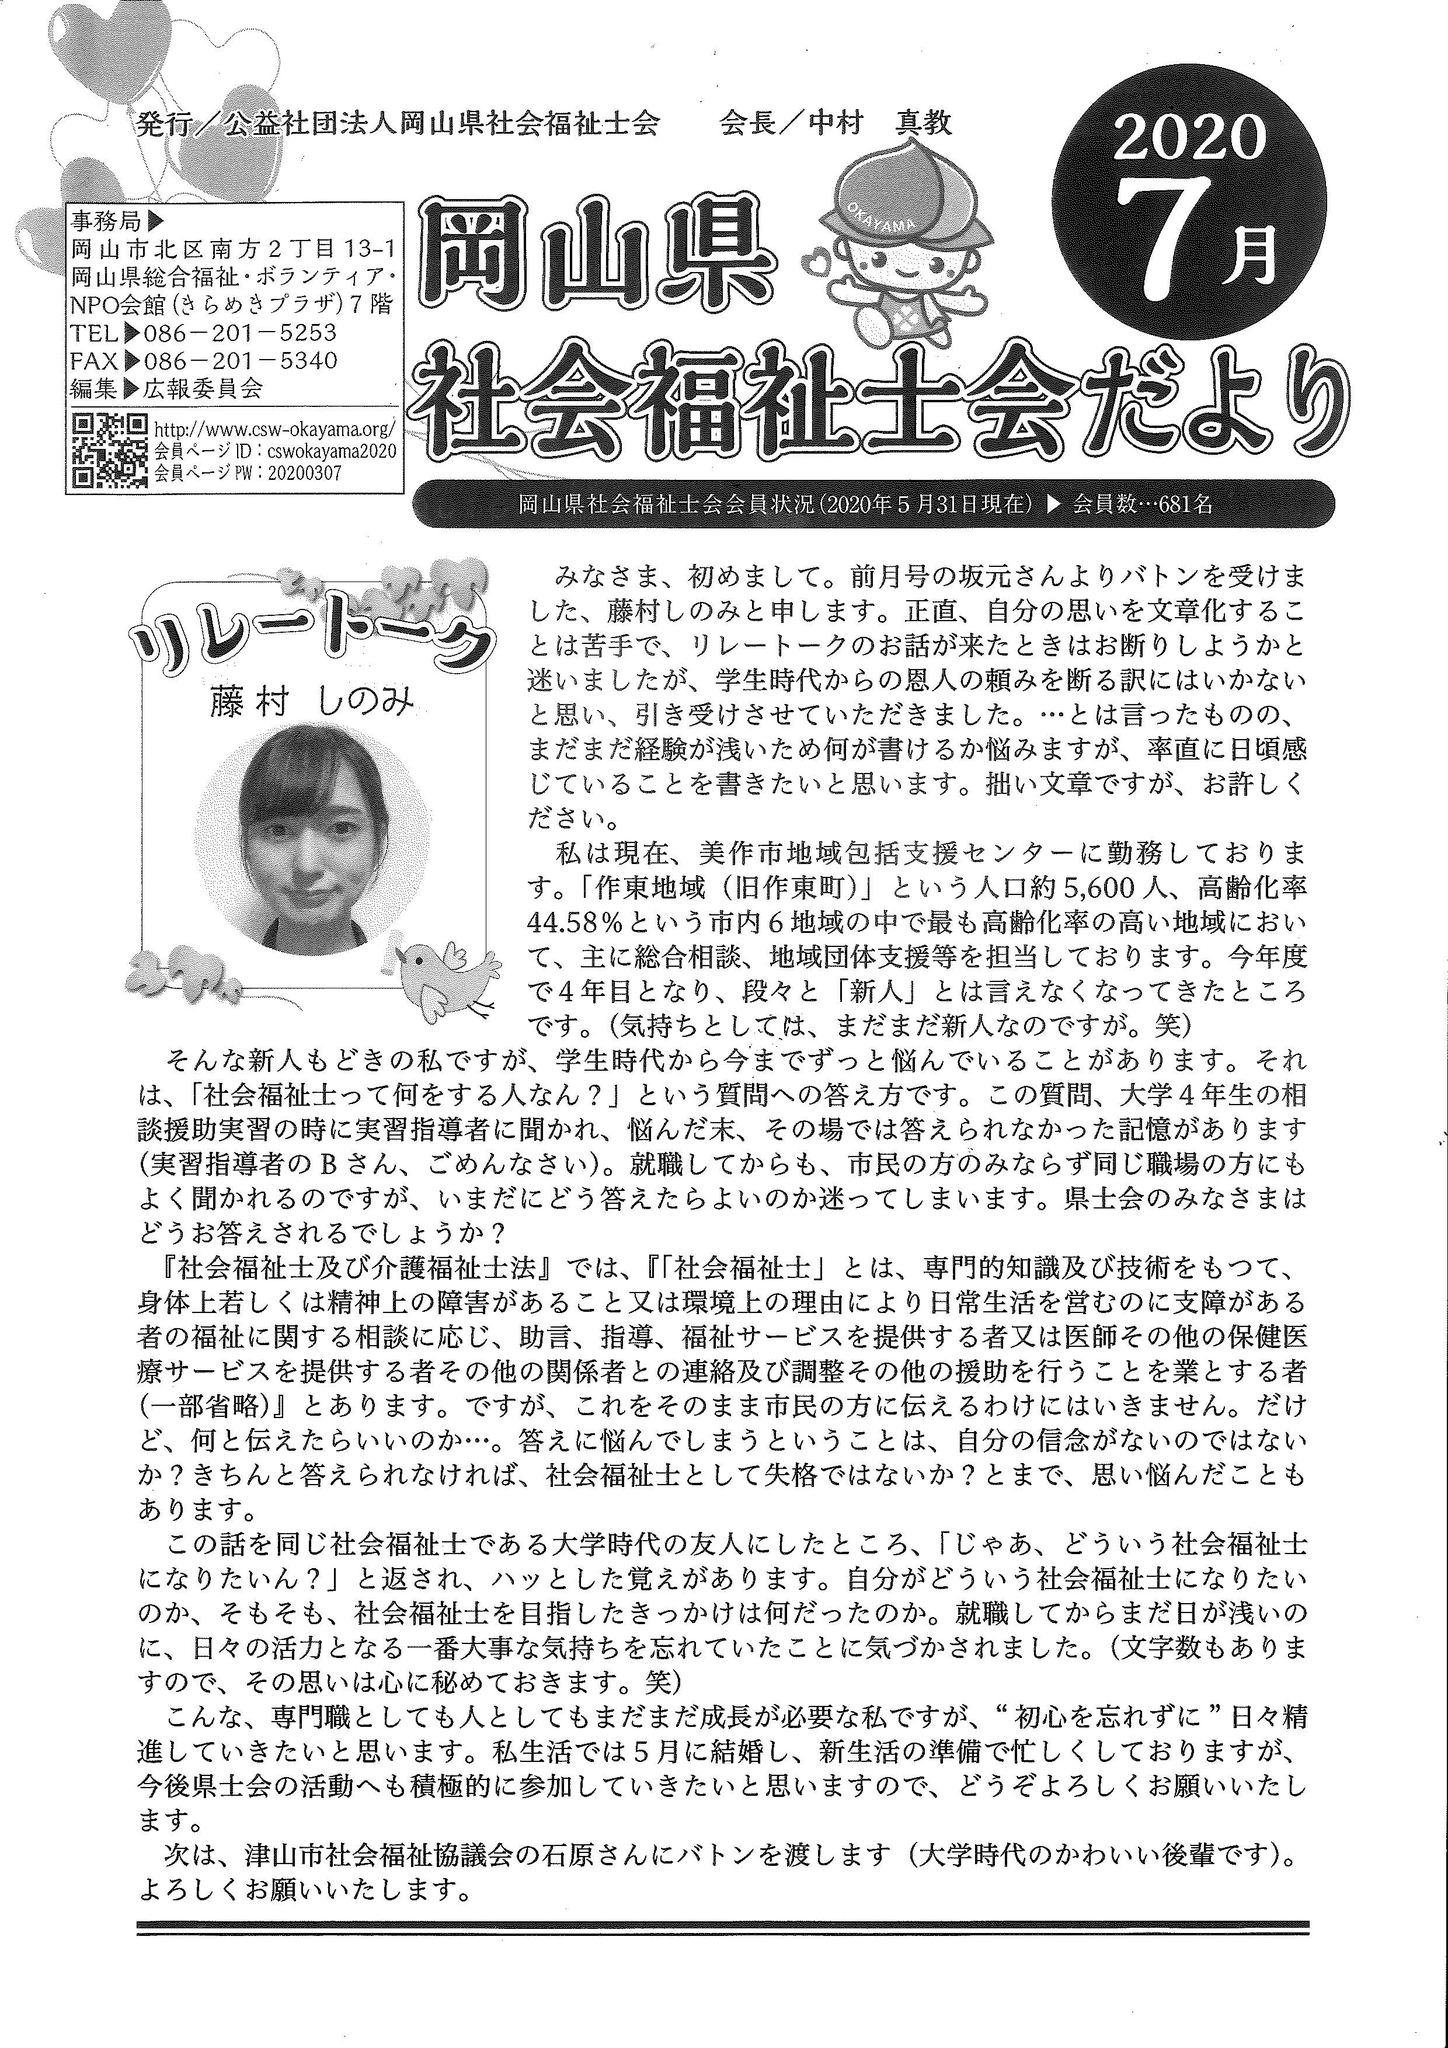 発行／公益社団法人岡山県社会福祉士会　会長／中村　真教
2020
7月
事務局▶
岡山市北区南方２丁目13-1
岡山県総合福祉・ボランティア・
NPO会館(きらめきプラザ)７階
TEL▶086－201－5253
FAX▶086－201－5340
編集▶広報委員会
http://www.csw-okayama.org/
会員ページID：cswokayama2020
会員ページPW：20200307
OKAYAMA
岡山県
社会福祉士会だより
岡山県社会福祉士会会員状況(2020年５月31日現在)▶会員数…681名
リレートーク
藤村 しのみ
みなさま、初めまして。前月号の坂元さんよりバトンを受けま
した、藤村しのみと申します。正直、自分の思いを文章化するこ
とは苦手で、リレートークのお話が来たときはお断りしようかと
迷いましたが、学生時代からの恩人の頼みを断る訳にはいかない
と思い、引き受けさせていただきました。…とは言ったものの、
まだまだ経験が浅いため何が書けるか悩みますが、率直に日頃感
じていることを書きたいと思います。拙い文章ですが、お許しく
ださい。
私は現在、美作市地域包括支援センターに勤務しておりま
す。「作東地域（旧作東町）」という人口約5,600人、高齢化率
44.58％という市内６地域の中で最も高齢化率の高い地域におい
て、主に総合相談、地域団体支援等を担当しております。今年度
で４年目となり、段々と「新人」とは言えなくなってきたところ
です。（気持ちとしては、まだまだ新人なのですが。笑）
そんな新人もどきの私ですが、学生時代から今までずっと悩んでいることがあります。それ
は、「社会福祉士って何をする人なん？」という質問への答え方です。この質問、大学４年生の相
談援助実習の時に実習指導者に聞かれ、悩んだ末、その場では答えられなかった記憶があります
(実習指導者のBさん、ごめんなさい)。就職してからも、市民の方のみならず同じ職場の方にも
よく聞かれるのですが、いまだにどう答えたらよいのか迷ってしまいます。県士会のみなさまは
どうお答えされるでしょうか？
『社会福祉士及び介護福祉士法』では、『「社会福祉士」とは、専門的知識及び技術をもつて、
身体上若しくは精神上の障害があること又は環境上の理由により日常生活を営むのに支障がある
者の福祉に関する相談に応じ、助言、指導、福祉サービスを提供する者又は医師その他の保健医
療サービスを提供する者その他の関係者との連絡及び調整その他の援助を行うことを業とする者
(一部省略)』とあります。ですが、これをそのまま市民の方に伝えるわけにはいきません。だけ
ど、何と伝えたらいいのか…。答えに悩んでしまうということは、自分の信念がないのではない
か？きちんと答えられなければ、社会福祉士として失格ではないか？とまで、思い悩んだことも
あります。
この話を同じ社会福祉士である大学時代の友人にしたところ、「じゃあ、どういう社会福祉士
になりたいん？」と返され、ハッとした覚えがあります。自分がどういう社会福祉士になりたい
のか、そもそも、社会福祉士を目指したきっかけは何だったのか。就職してからまだ日が浅いの
に、日々の活力となる一番大事な気持ちを忘れていたことに気づかされました。（文字数もありま
すので、その思いは心に秘めておきます。笑）
こんな、専門職としても人としてもまだまだ成長が必要な私ですが、“初心を忘れずに”日々精
進していきたいと思います。私生活では５月に結婚し、新生活の準備で忙しくしておりますが、
今後県士会の活動へも積極的に参加していきたいと思いますので、どうぞよろしくお願いいたし
ます。
次は、津山市社会福祉協議会の石原さんにバトンを渡します（大学時代のかわいい後輩です）。
よろしくお願いいたします。